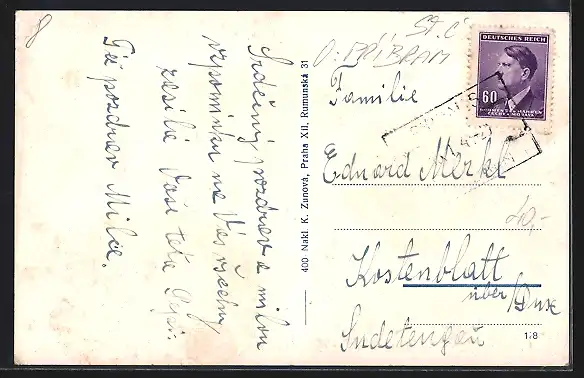 8
Srdečný pozdrav a milou
vzpomínku na Vás všechny
zasílá Vaše teta
Též pozdrav Milce.
400 Nakl. K. Zunová, Praha XII, Rumunská 31
St. Č
O: PŘÍBRAM
DEUTSCHES REICH
60
BÖHMEN u. MÄHREN
ČECHY a MORAVA
Familie
Eduard Merkl
40,-
Kostenblatt
über Dux
Sudetengau
128